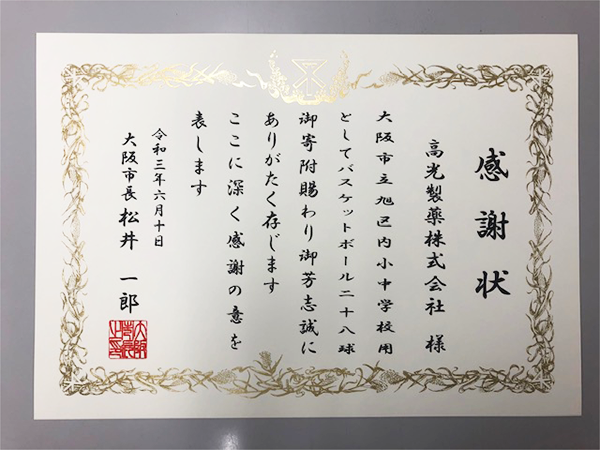 感謝状
高光製薬株式会社 様
大阪市立旭区内小中学校用
としてバスケットボール二十八球
御寄附賜わり御芳志誠に
ありがたく存じます
ここに深く感謝の意を
表します
令和三年六月十日
大阪市長 松井 一郎